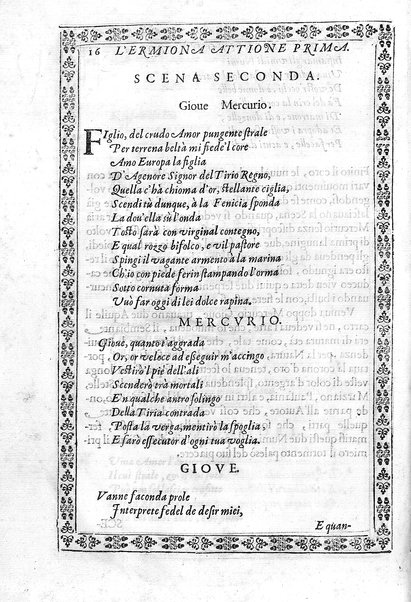 16 L'ERMIONA ATTIONE PRIMA.
SCENA SECONDA.
Gioue Mercurio.
FIglio, del crudo Amor pungente strale
Per terrena beltà mi fiede'l core
Amo Europa la figlia
D'Agenore Signor del Tirio Regno,
Quella c'hà chioma d'or, stellante ciglia,
Scendi tù dunque, à la Fenicia sponda
La dou'ella sù l'onda
Tosto sarà con virginal contegno,
E qual rozzo bifolco, e vil pastore
Spingi il vagante armento à la marina
Ch'io con piede ferin stampando l'orma
Sotto cornuta forma
Vuò far oggi di lei dolce rapina.
MERCVRIO.
Gioue, quanto t'aggrada
Or, or veloce ad eseguir m'accingo
Vestirò l piè dell'ali
Scenderò trà mortali
E n qualche antro solingo
Della Tiria contrada
Posta la verga, mentirò la spoglia,
E sarò essecutor d'ogni tua voglia.
GIOVE.
Vanne faconda prole
Interprete fedel de desir miei,
E quan-